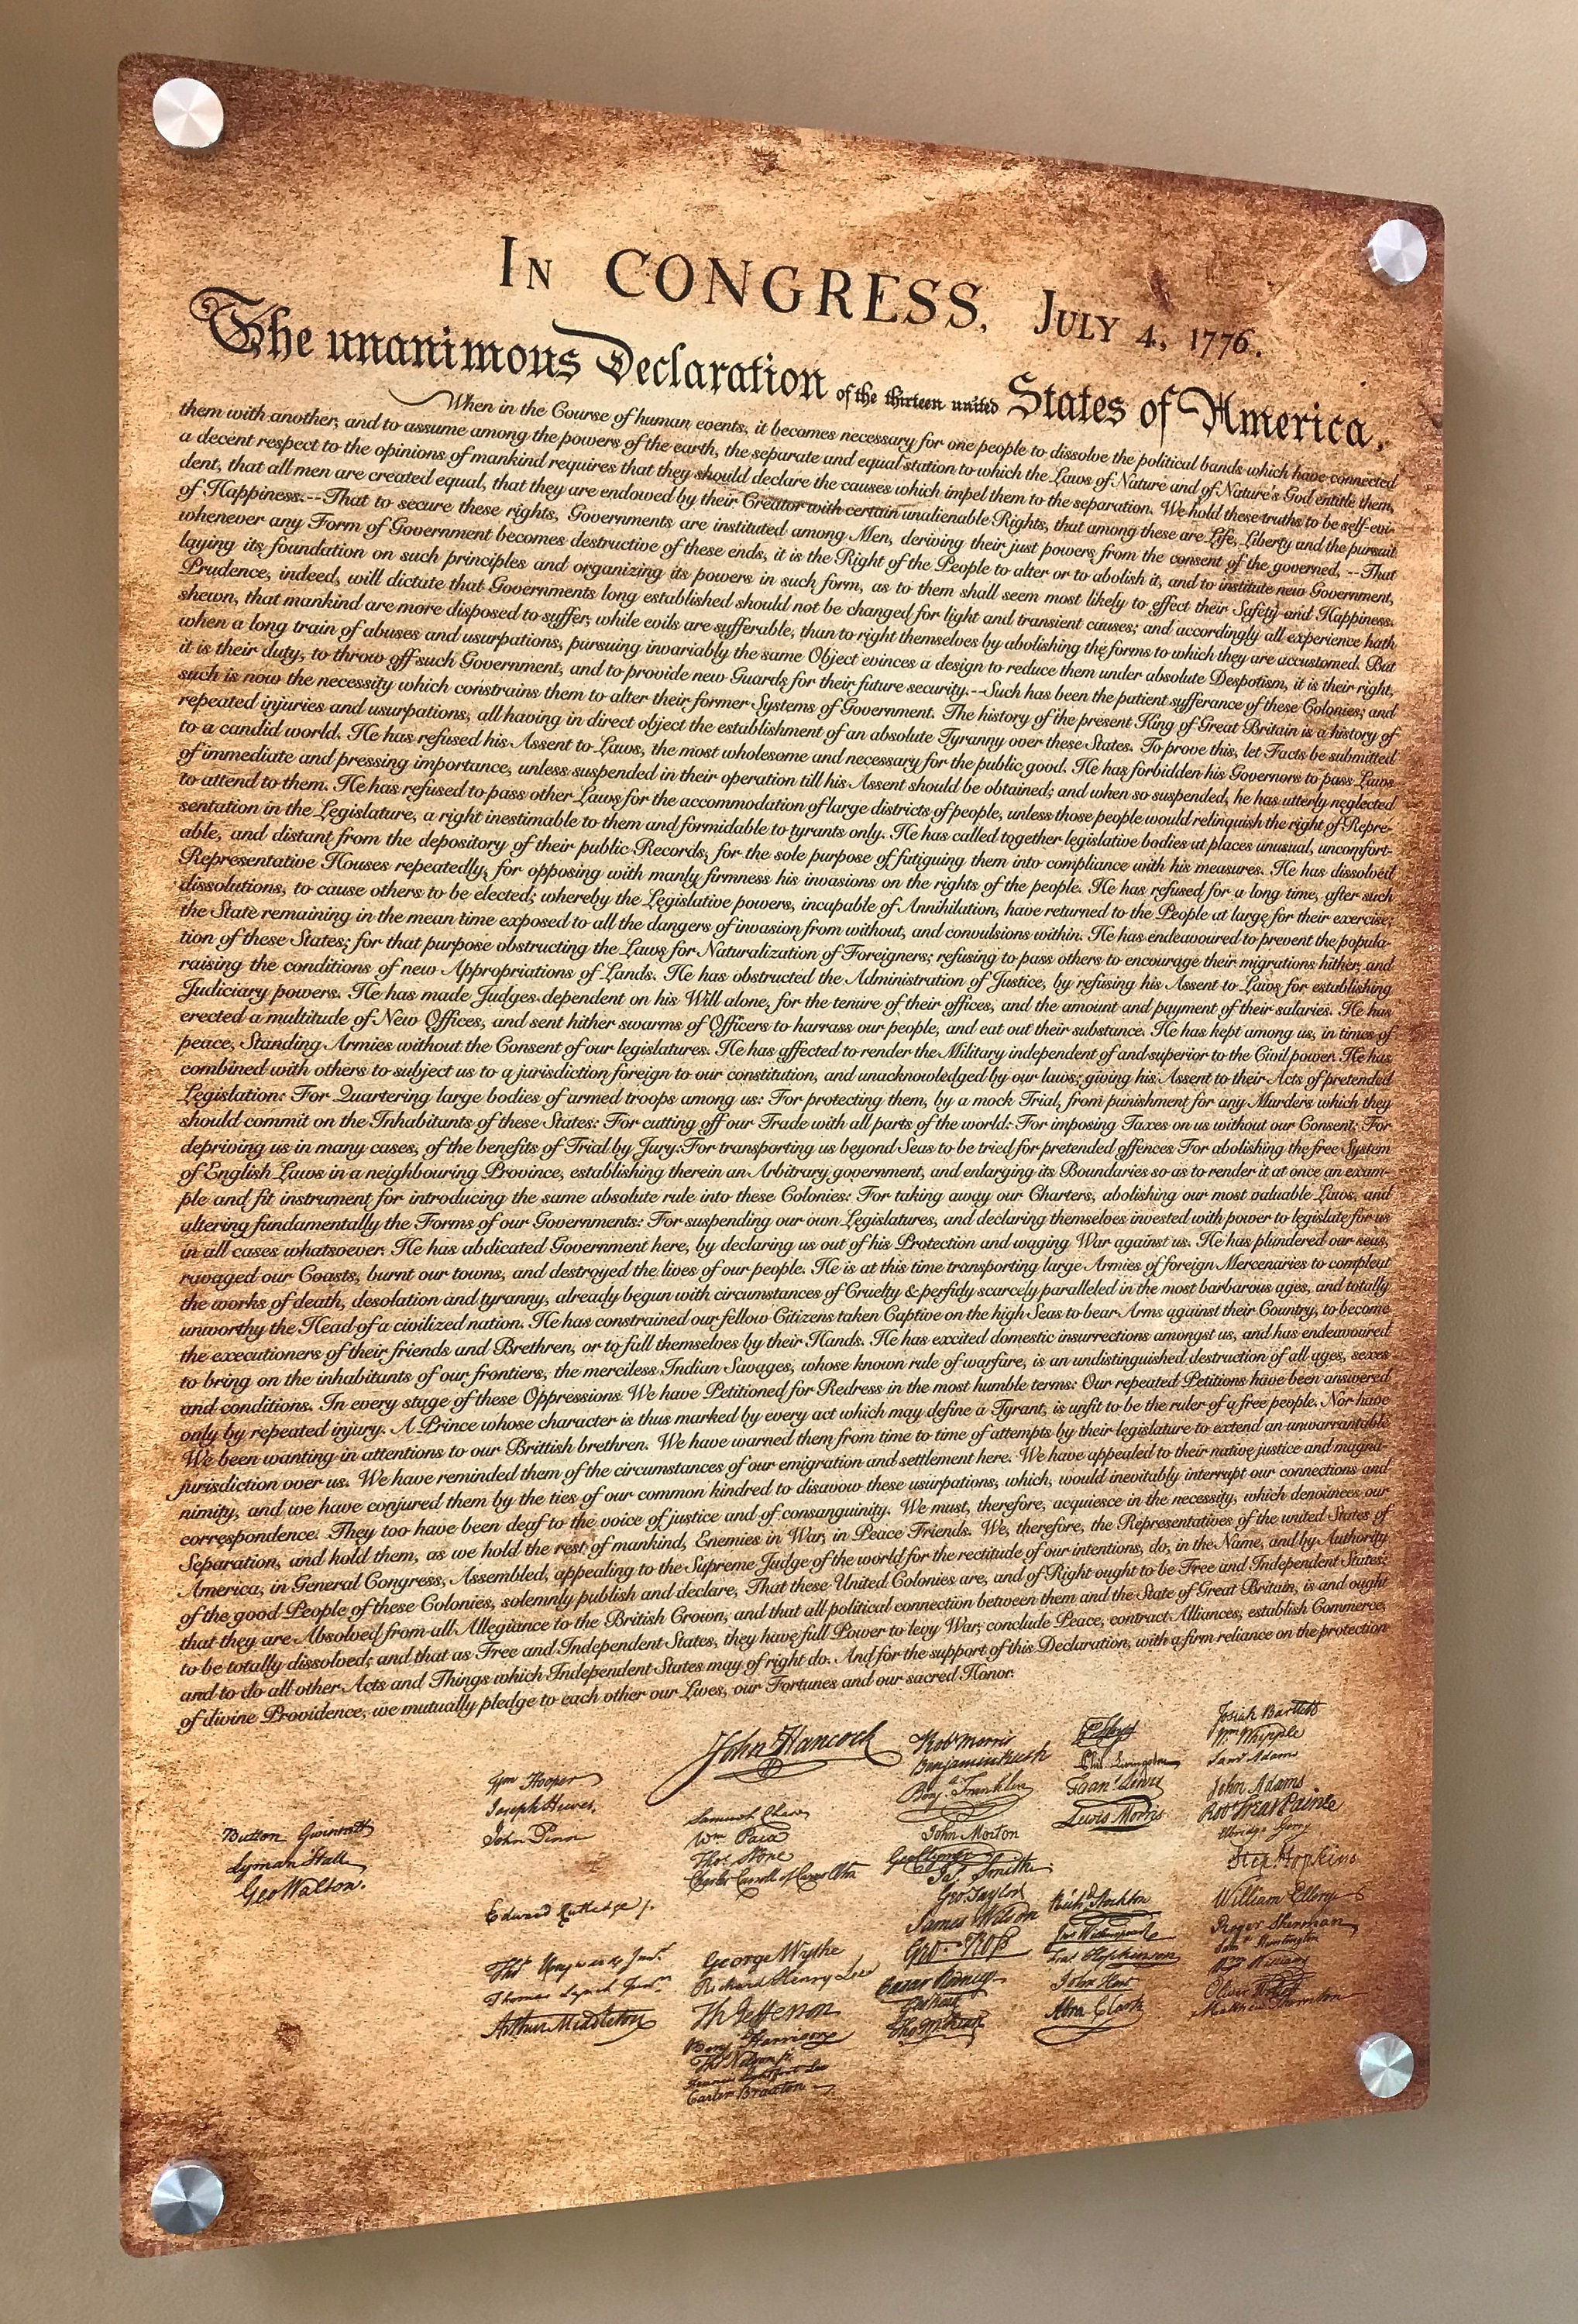 IN CONGRESS, JULY 4, 1776.
The unanimous Declaration of the thirteen united States of America,
When in the Course of human events, it becomes necessary for one people to dissolve the political bands which have connected
them with another, and to assume among the powers of the earth, the separate and equal station to which the Laws of Nature and of Nature's God entitle them,
a decent respect to the opinions of mankind requires that they should declare the causes which impel them to the separation. We hold these truths to be self-evi-
dent, that all men are created equal, that they are endowed by their Creator with certain unalienable Rights, that among these are Life, Liberty and the pursuit
of Happiness.--That to secure these rights, Governments are instituted among Men, deriving their just powers from the consent of the governed, --That
whenever any Form of Government becomes destructive of these ends, it is the Right of the People to alter or to abolish it, and to institute new Government,
laying its foundation on such principles and organizing its powers in such form, as to them shall seem most likely to effect their Safety and Happiness.
Prudence, indeed, will dictate that Governments long established should not be changed for light and transient causes; and accordingly all experience hath
shewn, that mankind are more disposed to suffer, while evils are sufferable, than to right themselves by abolishing the forms to which they are accustomed. But
when a long train of abuses and usurpations, pursuing invariably the same Object evinces a design to reduce them under absolute Despotism, it is their right,
it is their duty, to throw off such Government, and to provide new Guards for their future security.--Such has been the patient sufferance of these Colonies; and
such is now the necessity which constrains them to alter their former Systems of Government. The history of the present King of Great Britain is a history of
repeated injuries and usurpations, all having in direct object the establishment of an absolute Tyranny over these States. To prove this, let Facts be submitted
to a candid world. He has refused his Assent to Laws, the most wholesome and necessary for the public good. He has forbidden his Governors to pass Laws
of immediate and pressing importance, unless suspended in their operation till his Assent should be obtained; and when so suspended, he has utterly neglected
to attend to them. He has refused to pass other Laws for the accommodation of large districts of people, unless those people would relinquish the right of Repre-
sentation in the Legislature, a right inestimable to them and formidable to tyrants only. He has called together legislative bodies at places unusual, uncomfort-
able, and distant from the depository of their public Records, for the sole purpose of fatiguing them into compliance with his measures. He has dissolved
Representative Houses repeatedly, for opposing with manly firmness his invasions on the rights of the people. He has refused for a long time, after such
dissolutions, to cause others to be elected; whereby the Legislative powers, incapable of Annihilation, have returned to the People at large for their exercise;
the State remaining in the mean time exposed to all the dangers of invasion from without, and convulsions within. He has endeavoured to prevent the popula-
tion of these States; for that purpose obstructing the Laws for Naturalization of Foreigners; refusing to pass others to encourage their migrations hither, and
raising the conditions of new Appropriations of Lands. He has obstructed the Administration of Justice, by refusing his Assent to Laws for establishing
Judiciary powers. He has made Judges dependent on his Will alone, for the tenure of their offices, and the amount and payment of their salaries. He has
erected a multitude of New Offices, and sent hither swarms of Officers to harrass our people, and eat out their substance. He has kept among us, in times of
peace, Standing Armies without the Consent of our legislatures. He has affected to render the Military independent of and superior to the Civil power. He has
combined with others to subject us to a jurisdiction foreign to our constitution, and unacknowledged by our laws; giving his Assent to their Acts of pretended
Legislation: For Quartering large bodies of armed troops among us: For protecting them, by a mock Trial, from punishment for any Murders which they
should commit on the Inhabitants of these States: For cutting off our Trade with all parts of the world: For imposing Taxes on us without our Consent: For
depriving us in many cases, of the benefits of Trial by Jury: For transporting us beyond Seas to be tried for pretended offences For abolishing the free System
of English Laws in a neighbouring Province, establishing therein an Arbitrary government, and enlarging its Boundaries so as to render it at once an exam-
ple and fit instrument for introducing the same absolute rule into these Colonies: For taking away our Charters, abolishing our most valuable Laws, and
altering fundamentally the Forms of our Governments: For suspending our own Legislatures, and declaring themselves invested with power to legislate for us
in all cases whatsoever. He has abdicated Government here, by declaring us out of his Protection and waging War against us. He has plundered our seas,
ravaged our Coasts, burnt our towns, and destroyed the lives of our people. He is at this time transporting large Armies of foreign Mercenaries to compleat
the works of death, desolation and tyranny, already begun with circumstances of Cruelty & perfidy scarcely paralleled in the most barbarous ages, and totally
unworthy the Head of a civilized nation. He has constrained our fellow Citizens taken Captive on the high Seas to bear Arms against their Country, to become
the executioners of their friends and Brethren, or to fall themselves by their Hands. He has excited domestic insurrections amongst us, and has endeavoured
to bring on the inhabitants of our frontiers, the merciless Indian Savages, whose known rule of warfare, is an undistinguished destruction of all ages, sexes
and conditions. In every stage of these Oppressions We have Petitioned for Redress in the most humble terms: Our repeated Petitions have been answered
only by repeated injury. A Prince whose character is thus marked by every act which may define a Tyrant, is unfit to be the ruler of a free people. Nor have
We been wanting in attentions to our Brittish brethren. We have warned them from time to time of attempts by their legislature to extend an unwarrantable
jurisdiction over us. We have reminded them of the circumstances of our emigration and settlement here. We have appealed to their native justice and magna-
nimity, and we have conjured them by the ties of our common kindred to disavow these usurpations, which, would inevitably interrupt our connections and
correspondence. They too have been deaf to the voice of justice and of consanguinity. We must, therefore, acquiesce in the necessity, which denounces our
Separation, and hold them, as we hold the rest of mankind, Enemies in War, in Peace Friends. We, therefore, the Representatives of the united States of
America, in General Congress, Assembled, appealing to the Supreme Judge of the world for the rectitude of our intentions, do, in the Name, and by Authority
of the good People of these Colonies, solemnly publish and declare, That these United Colonies are, and of Right ought to be Free and Independent States;
that they are Absolved from all Allegiance to the British Crown, and that all political connection between them and the State of Great Britain, is and ought
to be totally dissolved; and that as Free and Independent States, they have full Power to levy War, conclude Peace, contract Alliances, establish Commerce,
and to do all other Acts and Things which Independent States may of right do. And for the support of this Declaration, with a firm reliance on the protection
of divine Providence, we mutually pledge to each other our Lives, our Fortunes and our sacred Honor.
Button Gwinnett
Lyman Hall
Geo Walton.
Wm Hooper
Joseph Hewes,
John Penn
Edward Rutledge /.
Thos Heyward Junr.
Thomas Lynch Junr.
Arthur Middleton
John Hancock
Samuel Chase
Wm Paca
Thos. Stone
Charles Carroll of Carrollton
George Wythe
Richard Henry Lee
Th Jefferson
Benj Harrison
Thos Nelson jr.
Francis Lightfoot Lee
Carter Braxton
Robt Morris
Benjamin Rush
Benja. Franklin
John Morton
Geo Clymer
Jas. Smith
Geo. Taylor
James Wilson
Geo. Ross
Caesar Rodney
Geo Read
Tho M:Kean
Wm Floyd
Phil. Livingston
Frans. Lewis
Lewis Morris
Richd. Stockton
Jno Witherspoon
Fras. Hopkinson
John Hart
Abra Clark
Josiah Bartlett
Wm Whipple
Saml Adams
John Adams
Robt Treat Paine
Elbridge Gerry
Step. Hopkins
William Ellery
Roger Sherman
Saml Huntington
Wm Williams
Oliver Wolcott
Matthew Thornton